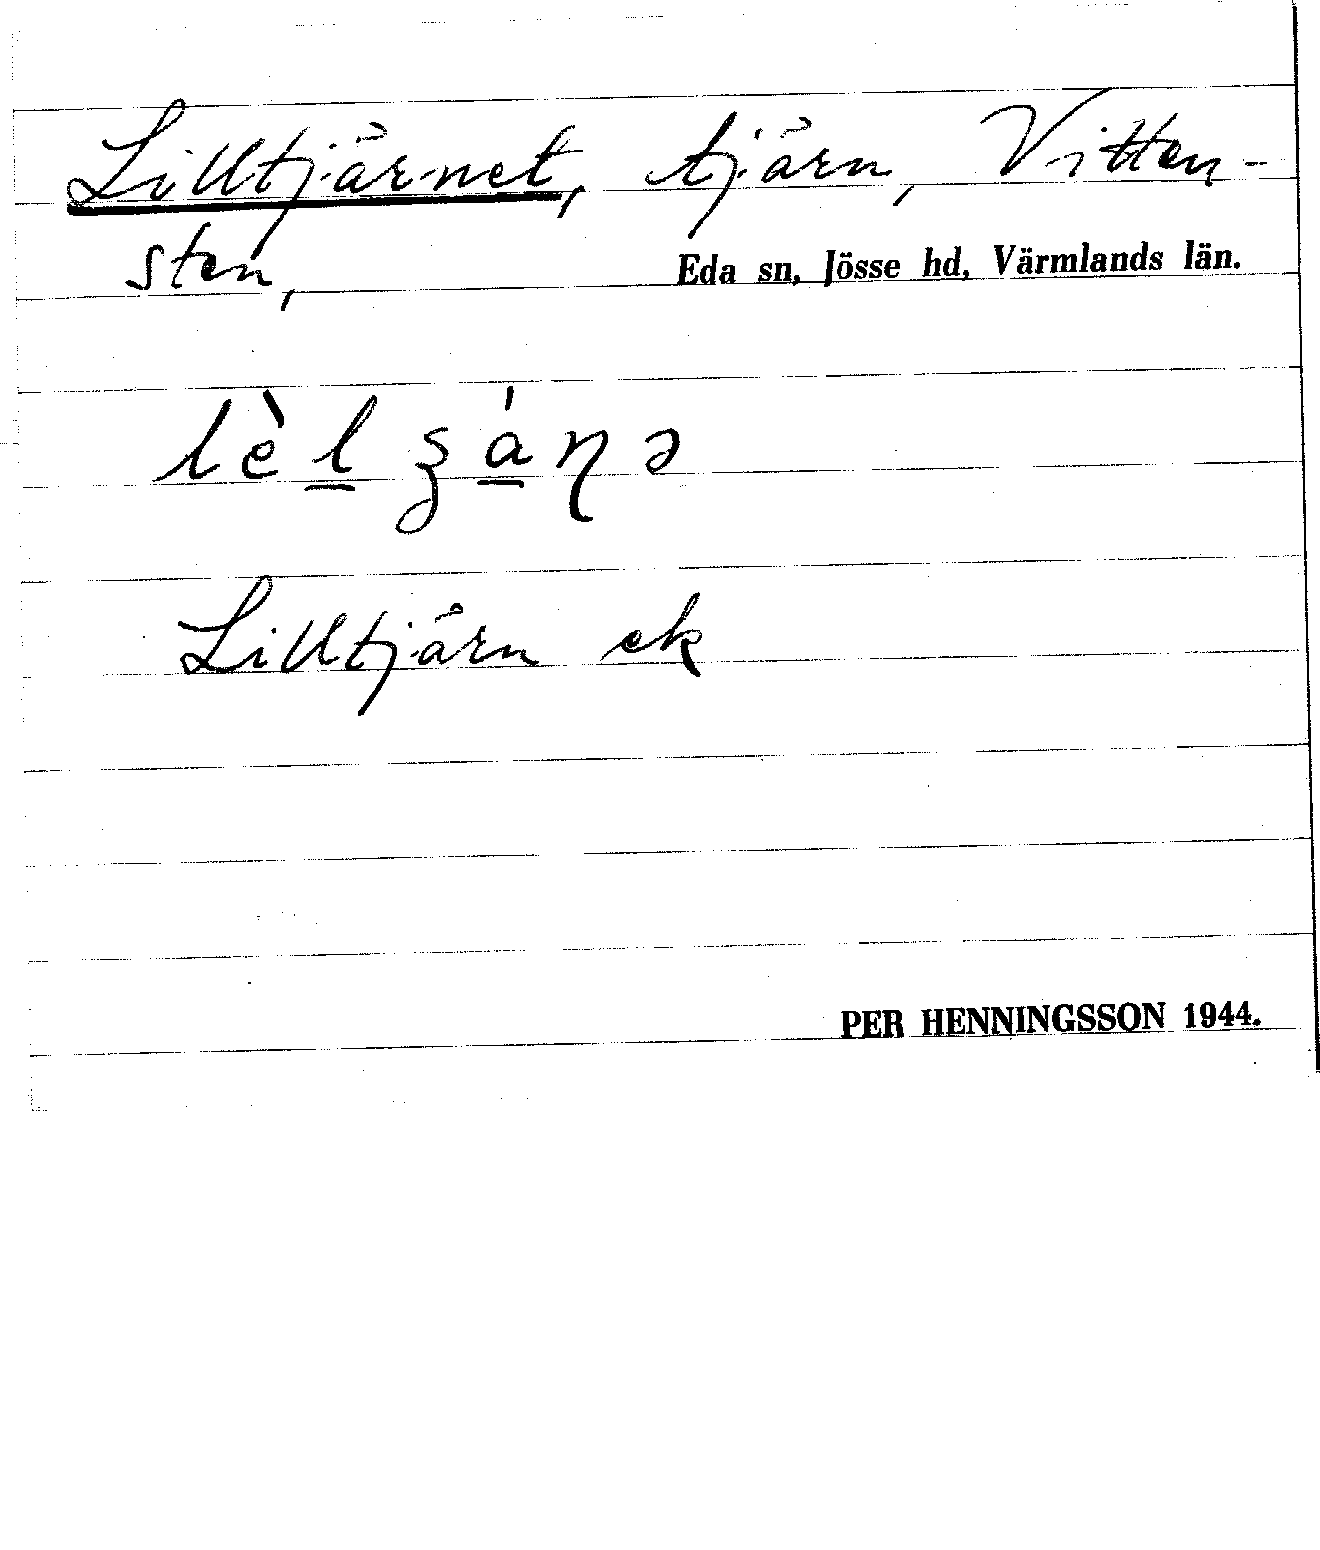 Lilltjärnet, tjärn, Vitten-
sten,
Eda sn, Jösse hd, Värmlands län.
Lilltjärn ek
PER HENNINGSSON 1944.